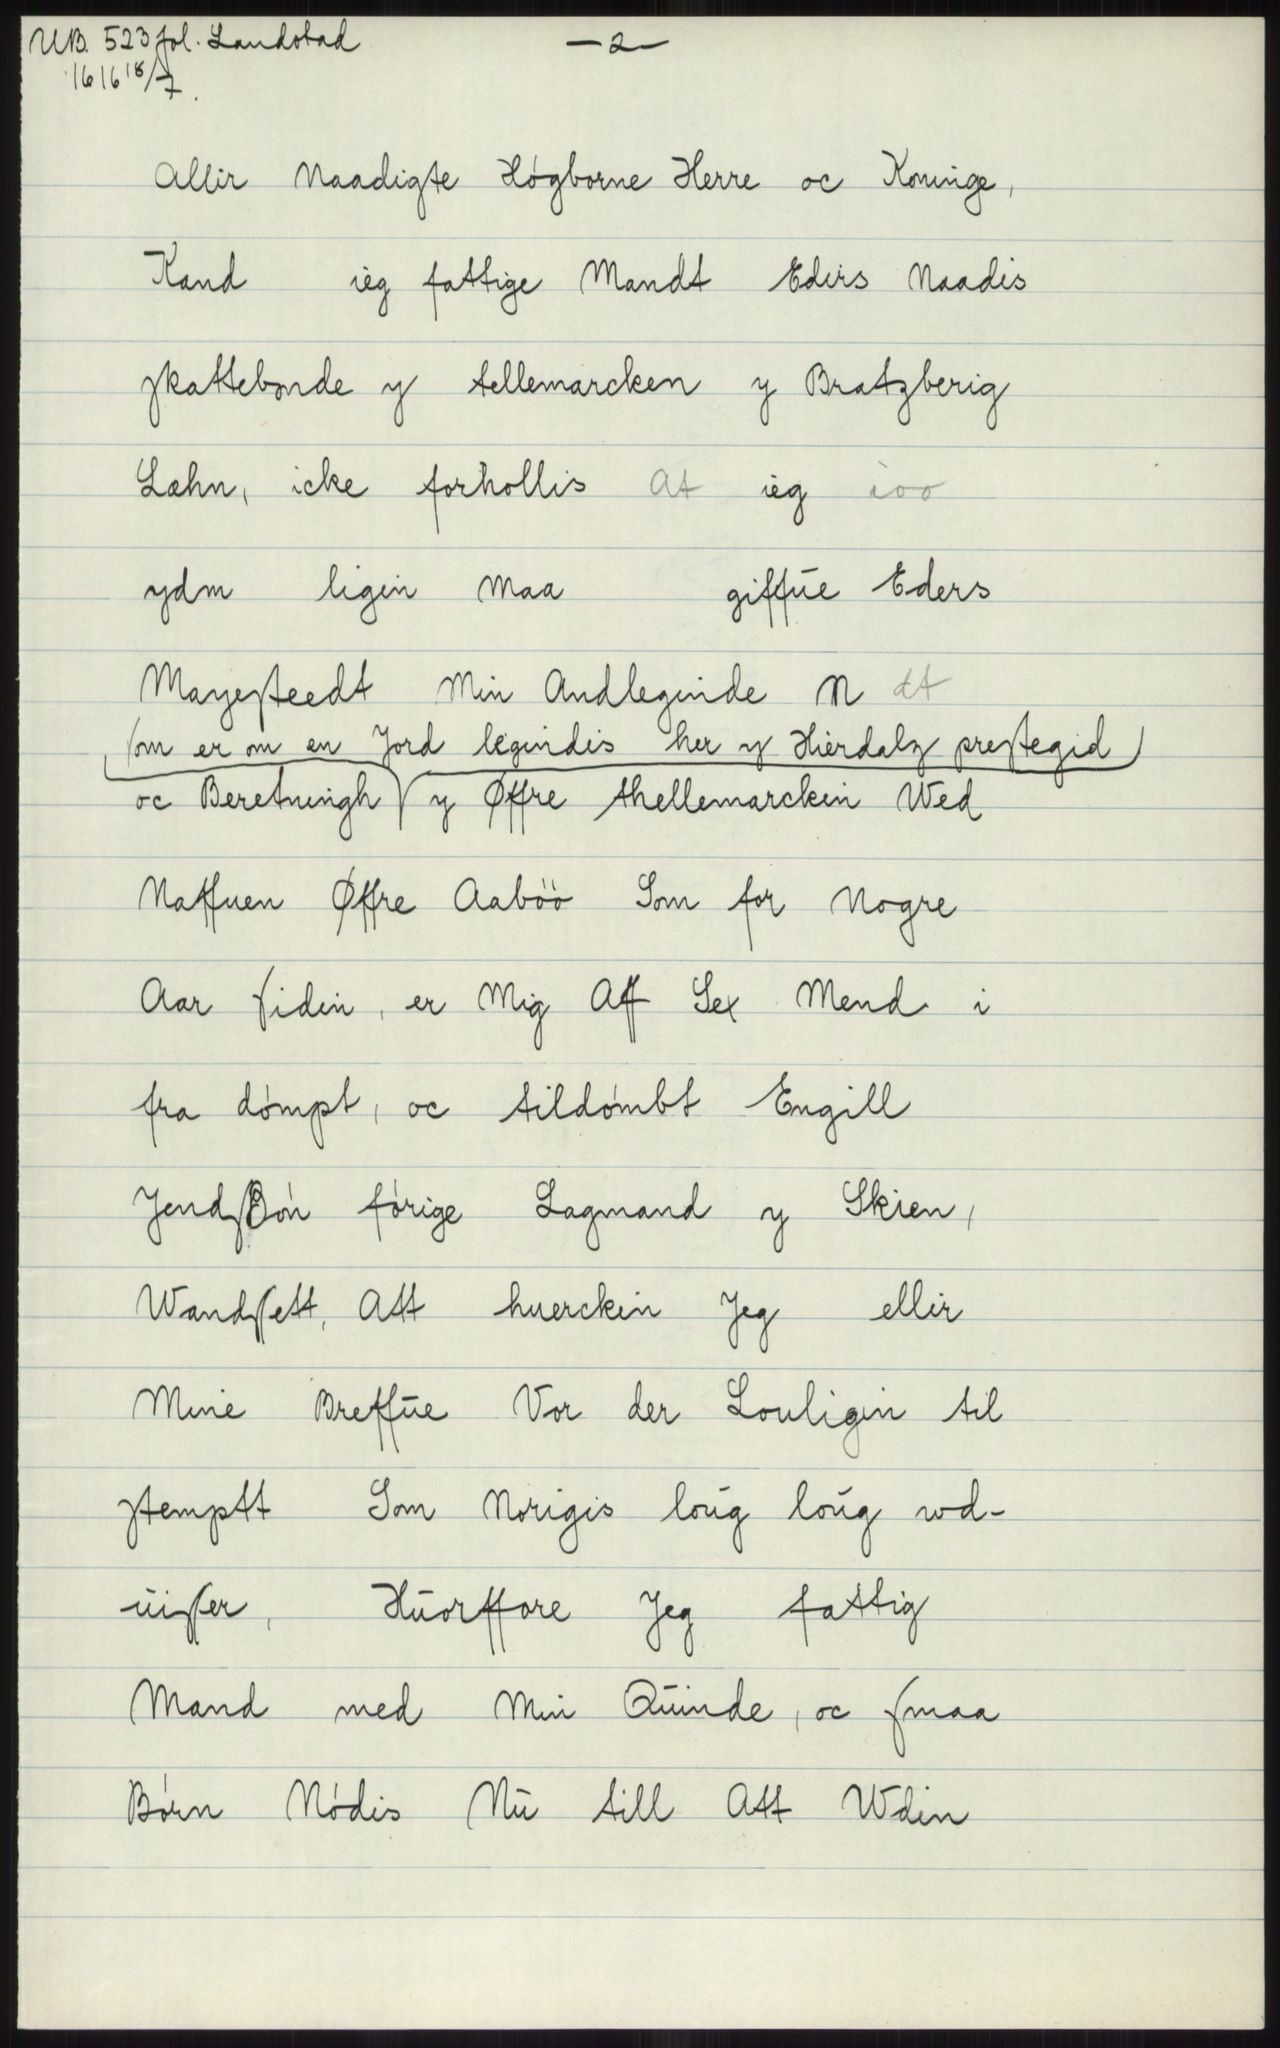 UB. 523 fol. Landstad
— 2 —
1616 18/7.
Allir Naadigte Høgborne Herre oc Koninge,
Kand ieg fattige Mandt Edirs Naadis
skattebonde y tellemarcken y Bratzberig
Læhn, icke forhollis At ieg ioo
ydm ligin Maa giffŭe Eders
Mayesteedt Min Andleginde N dt
som er om en Jord legindis her y Hierdalz prestegid
oc Beretningh y Øffre thellemarckin Wed
Naffuen Øffre Aaböö Som for Nogre
Aar sidin, er Mig Aff Sex Mend i
fra dómpt, oc tildómbt Engill
JendsSón fórige Lagmand y Skien,
Wandsett, Att huerckin Jeg ellir
Mine Breffŭe Vor der Louligin til
stemptt Som Norigis loŭg loŭg wd-
ŭisser, Hŭorffore Jeg fattig
Mand med Min Qŭinde, oc smaa
Bórn Nódis Nŭ till Att Wdin